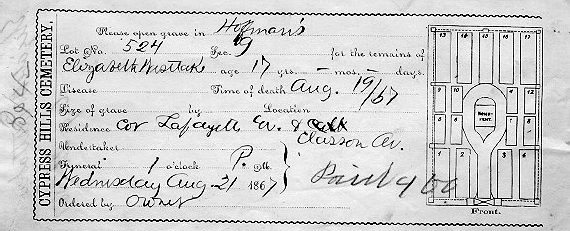 CYPRESS HILLS CEMETERY.
Please open grave in Hoffman's
Lot No. 524 Sec. 9 for the remains of
Elizabeth Westlake age 17 yrs. – mos. – days.
Disease Time of death Aug. 19/67
Size of grave by Location
Residence Cor Lafayett Av. &
Classon Av.
Undertaker
Funeral 1 o'clock P. M.
Wednesday Aug. 21 1867
Paid 4 00
Ordered by Owner
13 15 17
9 10 12
MONUMENT.
1 2 3 5
Front.